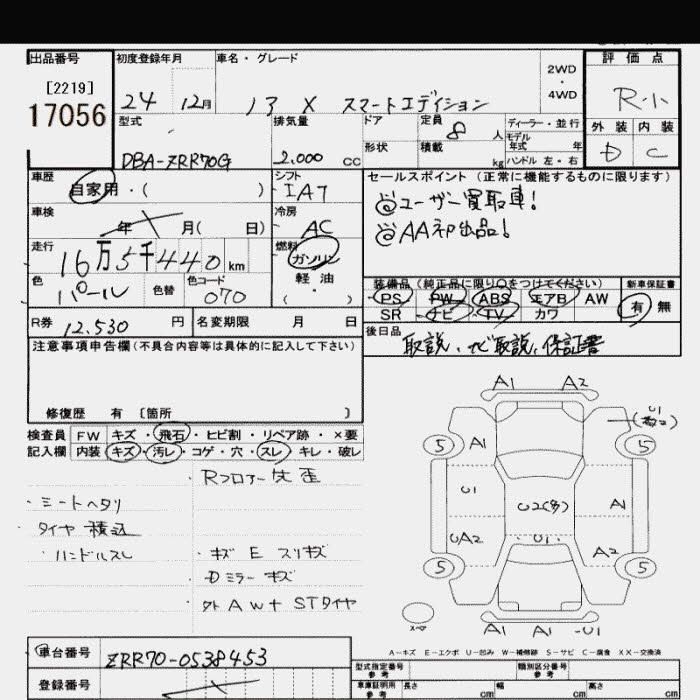 出品番号 初度登録年月 車名・グレード 2WD・4WD 評価点
[2219]
17056
24 12月 ノア X スマートエディション R・小
型式 排気量 ドア 定員 8 人 ディーラー・並行 外装 内装
形状 積載 kg モデル年式 年式 ハンドル 左・右 D C
DBA-ZRR70G 2.000 cc
車歴 シフト セールスポイント(正常に機能するものに限ります)
自家用・( ) IA7 ◎ユーザー買取車!
車検 冷房 ◎AA初出品!
年 月( 日) AC
走行 燃料
16万5千440km ガソリン・軽油・( )
色 パール 色替 色コード 070
装備品(純正品に限り○をつけてください) 新車保証書
PS PW ABS エアB AW 有 無
SR ナビ TV カワ
R券 12.530 円 名変期限 月 日 後日品
取説、ナビ取説、保証書
注意事項申告欄(不具合内容等は具体的に記入して下さい)
修復歴 有 〔箇所 〕
検査員 FW キズ・飛石・ヒビ割・リペア跡・×要
記入欄 内装 キズ・汚レ・コゲ・穴・スレ・キレ・破レ
Rフロアー 歪
・シートヘタリ
タイヤ積込
・ハンドルスレ ・キズ E スリキズ
・Dミラーキズ
外AW+STタイヤ
A1 A2
U1
5 A1 5
U1 U2(多) A1
UA2 U1 A2
5 5
スペア A1 A1 U1
A-キズ E-エクボ U-凹み W-補修跡 S-サビ C-腐食 XX-交換済
車台番号 ZRR70-0538453
登録番号
型式指定番号 参考 類別区分番号 参考
車庫証明用 参考 長さ cm 幅 cm 高さ cm